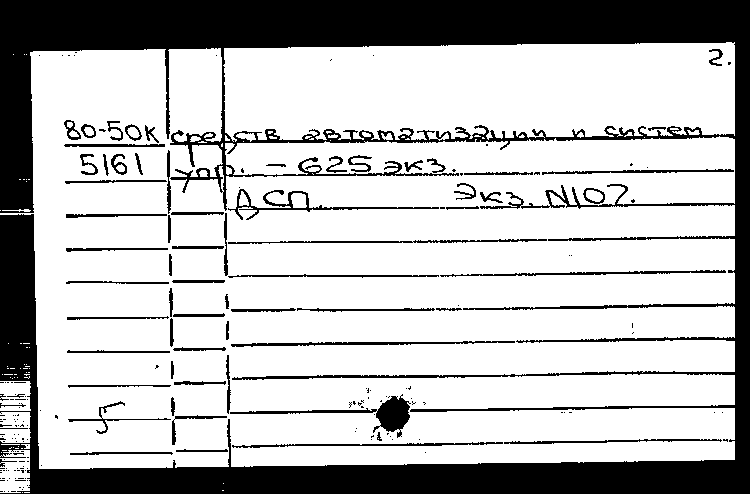 2.
80-50к средств автоматизации и систем
5161 упр. - 625 экз.
ДСП Экз. N107.
5